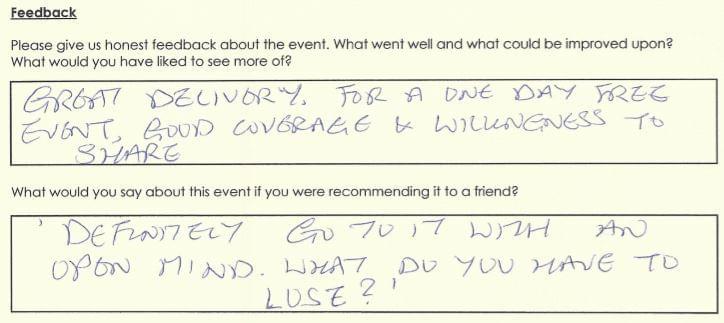 Feedback
Please give us honest feedback about the event. What went well and what could be improved upon?
What would you have liked to see more of?
GREAT DELIVERY. FOR A ONE DAY FREE
EVENT, GOOD COVERAGE & WILLINGNESS TO
SHARE
What would you say about this event if you were recommending it to a friend?
'DEFINITELY GO TO IT WITH AN
OPEN MIND. WHAT DO YOU HAVE TO
LOSE?'